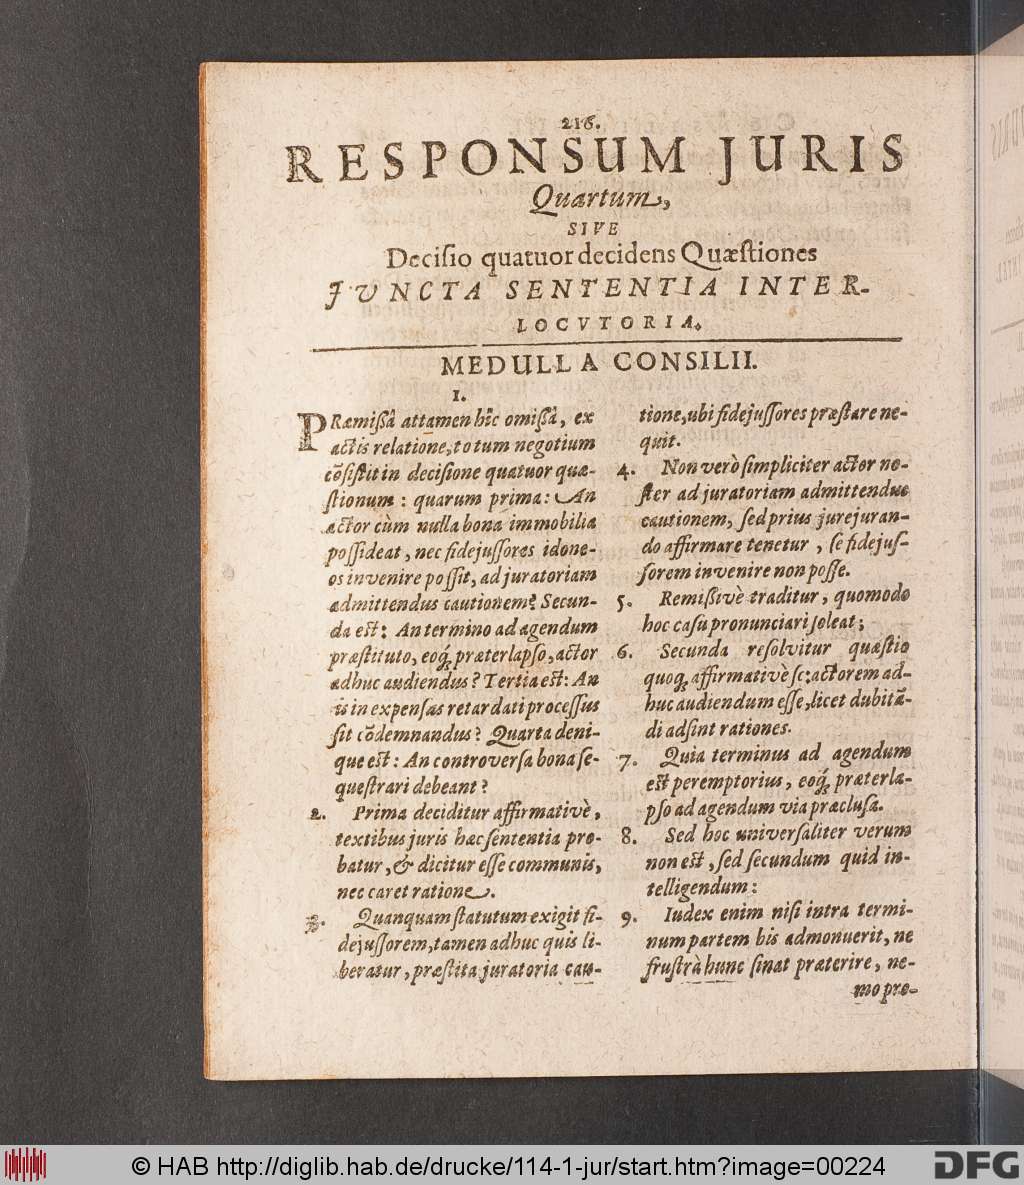 216.
RESPONSUM JURIS
Quartum,
SIVE
Decisio quatuor decidens Quæstiones
JVNCTA SENTENTIA INTER-
LOCVTORIA.
MEDULLA CONSILII.
1.
PRæmißâ attamen hîc omißâ, ex
actis relatione, totum negotium
cõsistit in decisione quatuor quæ-
stionum: quarum prima: An
actor cùm nulla bona immobilia
possideat, nec fidejussores idone-
os invenire possit, ad juratoriam
admittendus cautionem? Secun-
da est: An termino ad agendum
præstituto, eoq́; præterlapso, actor
adhuc audiendus? Tertia est: An
is in expensas retardati processus
sit cõdemnandus? Quarta deni-
que est: An controversa bona se-
questrari debeant?
2. Prima deciditur affirmativè,
textibus juris hæc sententia pro-
batur, & dicitur esse communis,
nec caret ratione.
3. Quanquam statutum exigit fi-
dejussorem, tamen adhuc quis li-
beratur, præstita juratoria cau-
tione, ubi fidejussores præstare ne-
quit.
4. Non verò simpliciter actor no-
ster ad juratoriam admittendus
cautionem, sed prius jurejuran-
do affirmare tenetur, se fidejus-
sorem invenire non posse.
5. Remißivè traditur, quomodo
hoc casu pronunciari soleat;
6. Secunda resolvitur quæstio
quoq; affirmativè sc: actorem ad-
huc audiendum esse, licet dubitã-
di adsint rationes.
7. Quia terminus ad agendum
est peremptorius, eoq́; præterla-
pso ad agendum via præclusa.
8. Sed hoc universaliter verum
non est, sed secundum quid in-
telligendum:
9. Iudex enim nisi intra termi-
num partem bis admonuerit, ne
frustrà hunc sinat præterire, ne-
mo pro-
© HAB http://diglib.hab.de/drucke/114-1-jur/start.htm?image=00224
DFG